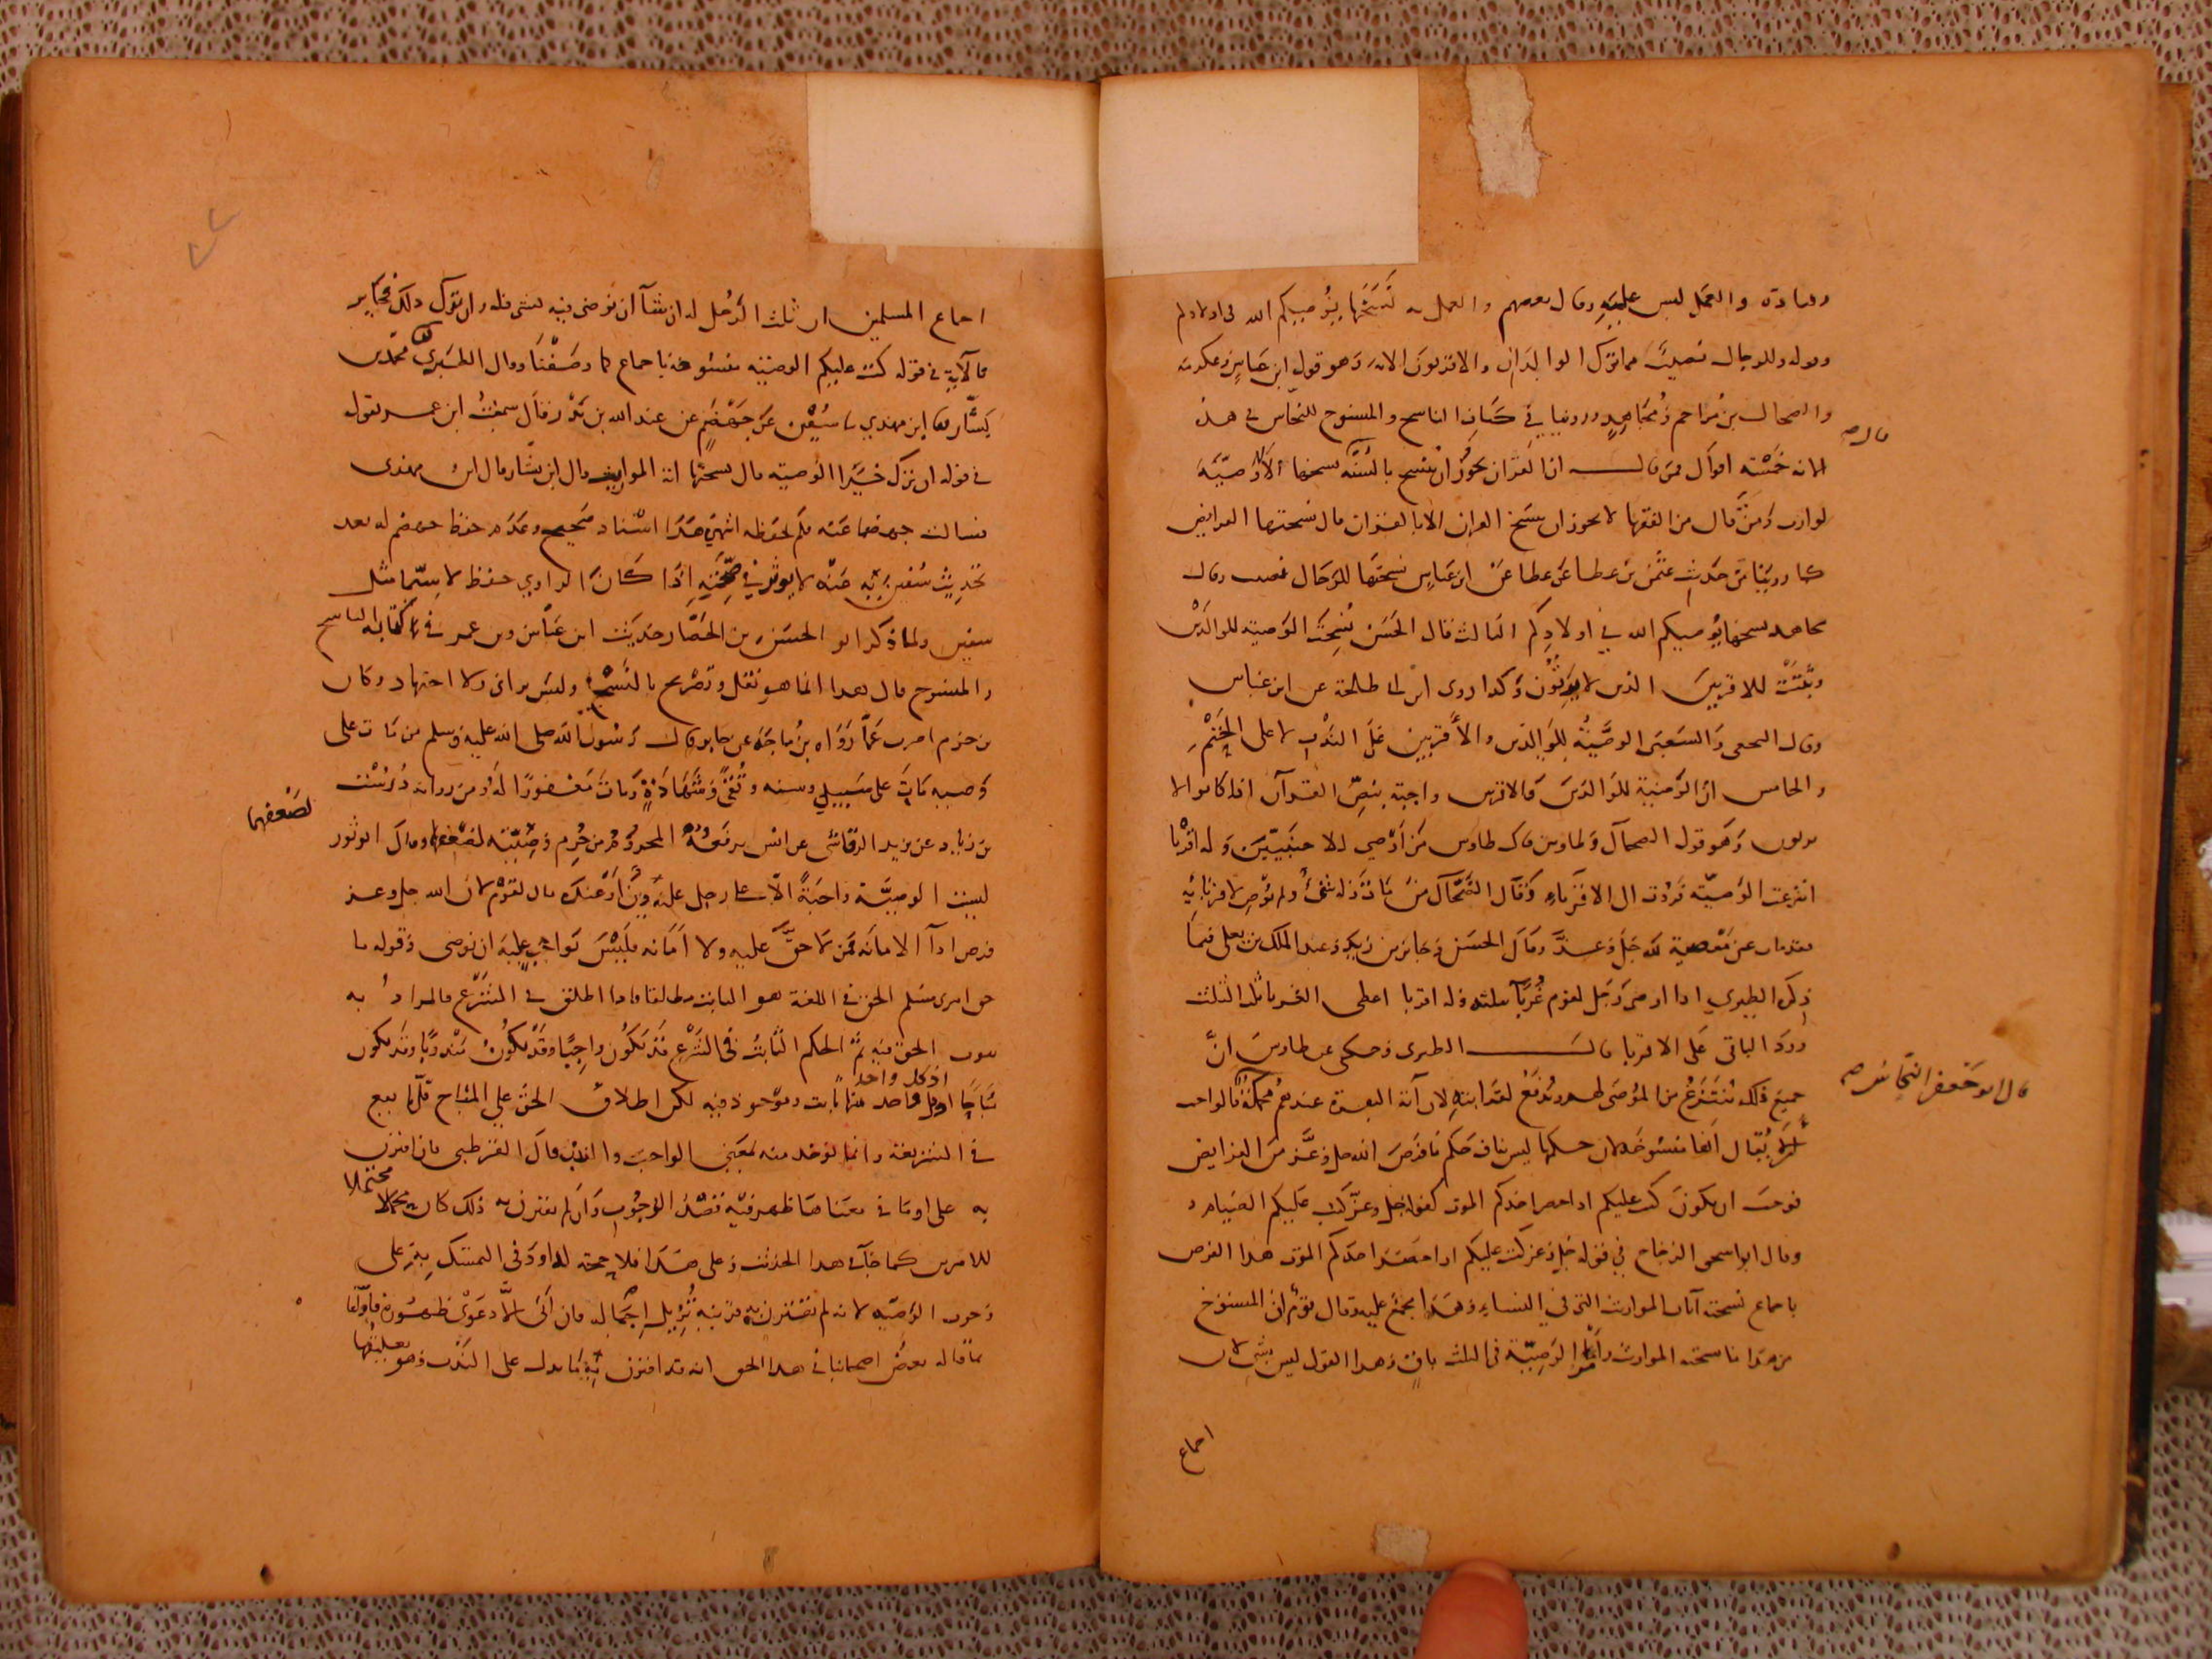 وقتادة والعمل ليس عليه وقال بعضهم والعمل نسختها يوصيكم الله في اولادكم
وقوله وللرجال نصيب مما ترك الوالدان والاقربون الاية وهو قول ابن عباس وعكرمة
والضحاك بن مزاحم ومجاهد وروينا في كتاب الناسخ والمنسوخ للنحاس في هذه
قال
الاية خمسة اقوال فمن قال ان القران يجوز ان ينسخ بالسنة نسخها لا وصية
لوارث ومن قال من الفقها لا يجوز ان ينسخ القران الا بالقران قال نسختها الفرايض
كما روينا من حديث عثمن بن عطا عن عطا عن ابن عباس نسختها للرجال نصيب وقال
مجاهد نسخها يوصيكم الله في اولادكم الثالث قال الحسن نسخت الوصية للوالدين
وثبتت للاقربين الذين لا يرثون وكذا روى ابن ابي طلحة عن ابن عباس
وقال النخعي والشعبي الوصية للوالدين والاقربين على الندب لا على الحتم
والخامس ان الوصية للوالدين والاقربين واجبة بنص القرآن اذا كانوا لا
يرثون وهو قول الضحاك وطاوس قال طاوس من اوصى لاجنبيين وله اقربا
انتزعت الوصية فردت الى الاقرباء وقال الضحاك من مات وله شيء ولم يوص لاقربائه
فقد مات عن معصية لله جل وعز وقال الحسن وجابر بن زيد وعبد الملك بن يعلى فيما
ذكره الطبري اذا اوصى رجل لقوم غربا بثلثه وله اقربا اعطى الغربا ثلث الثلث
ورد الباقي على الاقربا قال الطبري وحكى عن طاوس ان
جميع ذلك ينتزع من الموصى لهم ويدفع لقرابته لان آية البقرة عندهم محكمة فالواجب
قال ابو جعفر النحاس
ان لا يقال انها منسوخة لان حكمها ليس بناف حكم ما فرض الله جل وعز من الفرايض
فوجب ان يكون كتب عليكم اذا حضر احدكم الموت كقوله جل وعز كتب عليكم الصيام
وقال ابو اسحق الزجاج في قوله جل وعز كتب عليكم اذا حضر احدكم الموت هذا الفرض
باجماع نسخته آيات المواريث التي في النساء وهذا مجمع عليه وقال قوم ان المنسوخ
من هذا ما نسخته المواريث وامر الوصية في الثلث باق وهذا القول ليس بشي لان
اجماع
اجماع المسلمين ان ثلث الرجل له ان شآ ان يوصي فيه بشي فله وان ترك ذلك فجايز
فالآية في قوله كتب عليكم الوصية منسوخة باجماع كما وصفنا وقال الطبري محمد بن
بشار ابن مهدي سفين عن جهضم عن عبد الله بن بدر قال سمعت ابن عمر يقول
في قوله ان ترك خيرا الوصية قال نسختها اية المواريث قال ابن بشار قال ابن مهدي
فسالت جهضما عنه فلم يحفظه انتهى هذا اسناد صحيح وعدم حفظ جهضم له بعد
تحديث سفين به عنه لا يوثر في صحته اذا كان الراوي حفظ لا سيما مثل
سفين ولما ذكر ابو الحسن بن الحصار حديث ابن عباس وبن عمر في كتابه الناسخ
والمنسوخ قال بعد انما هو نقل وتصريح بالنسخ وليس براي ولا اجتهاد وكان
بن حزم اضرب عما رواه بن ماجة عن جابر قال رسول الله صلى الله عليه وسلم من مات على
وصية مات على سبيل وسنة وتقى وشهادة ومات مغفورا له ومن رواية درست
بن زياد عن يزيد الرقاشي عن انس يرفعه المحروم من حرم وصيته لضعفهما وقال ابو ثور
لضعفهما
ليست الوصية واجبة الا على رجل عليه دين او عنده مال لقوم لان الله جل وعز
فرض ادآ الامانة فمن لا حق عليه ولا امانة فليس بواجب عليه ان يوصي وقوله ما
حق امرى مسلم الحق في اللغة هو الثابت مطلقا فاذا اطلق في الشرع فالمراد به
ثبوت الحق فيه ثم الحكم الثابت في الشرع قد يكون واجبا وقد يكون مندوبا وقد يكون
مباحا اذ كل واحد منها ثابت وموجود فيه لكن اطلاق الحق على المباح قلما يقع
في الشريعة وانما يوخذ منه بمعنى الواجب والندب قال القرطبي فان اقترن
به على او ما في معناها ظهر فيه قصد الوجوب وان لم يقترن به ذلك كان محتملا
محتملا
للامرين كما جآ في هذا الحديث وعلى هذا فلا حجة لداود في التمسك به على
وجوب الوصية لانه لم تقترن به قرينة تزيل اجماله فان ابى الا دعوى ظهوره قابلنا
ما قاله بعض اصحابنا في هذا الحق انه قد اقترن به ما يدل على الندب وهو تعليقها